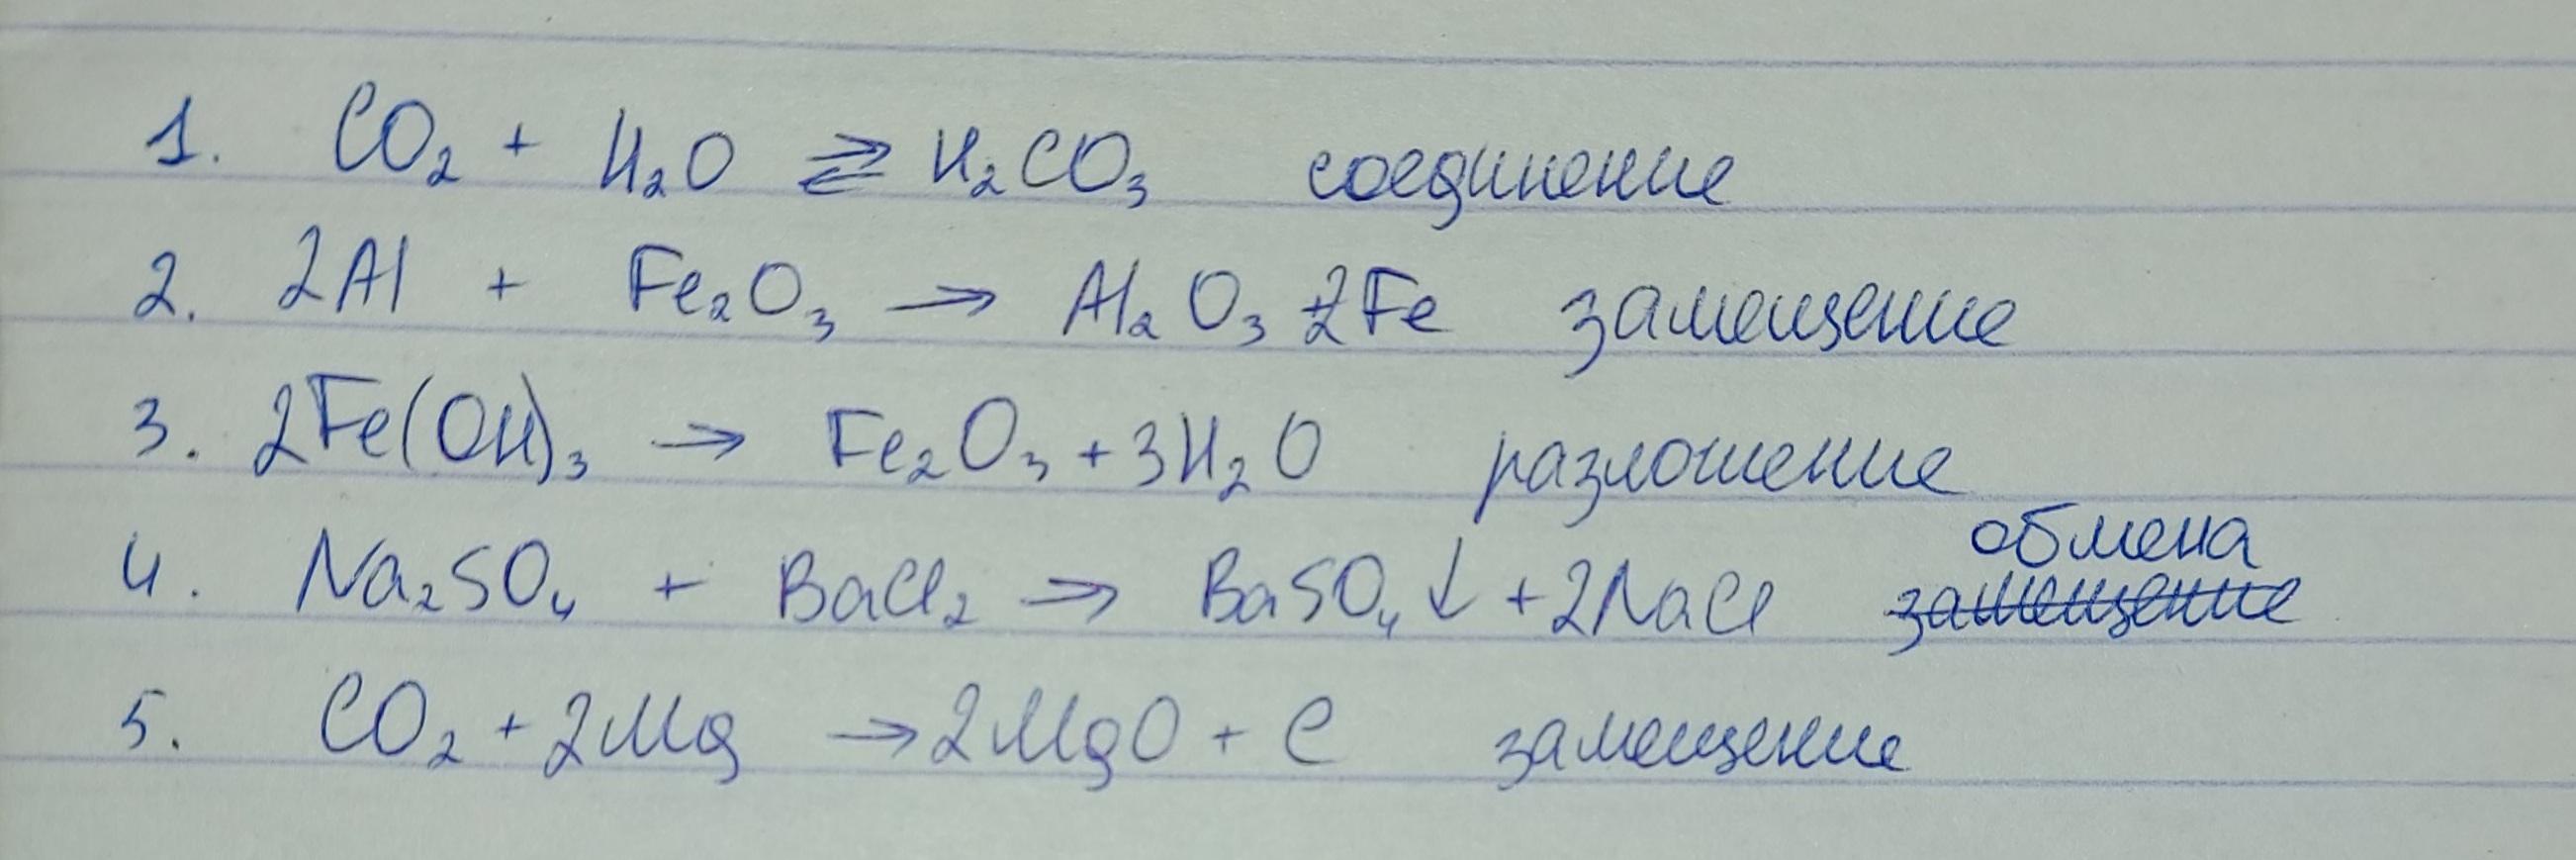 1. CO₂ + H₂O ⇄ H₂CO₃ соединение
2. 2Al + Fe₂O₃ → Al₂O₃ + 2Fe замещение
3. 2Fe(OH)₃ → Fe₂O₃ + 3H₂O разложение
обмена
4. Na₂SO₄ + BaCl₂ → BaSO₄↓ + 2NaCl ~~замещение~~
5. CO₂ + 2Mg → 2MgO + C замещение